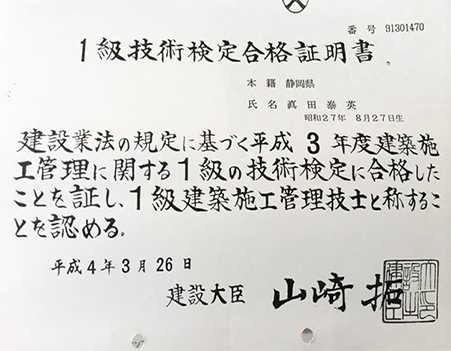 番号 91301470
1級技術検定合格証明書
本籍 静岡県
氏名 真田泰英
昭和27年 8月27日生
建設業法の規定に基づく平成 3 年度建築施
工管理に関する1級の技術検定に合格した
ことを証し、1級建築施工管理技士と称するこ
とを認める。
平成4年3月26日
建設大臣 山崎拓